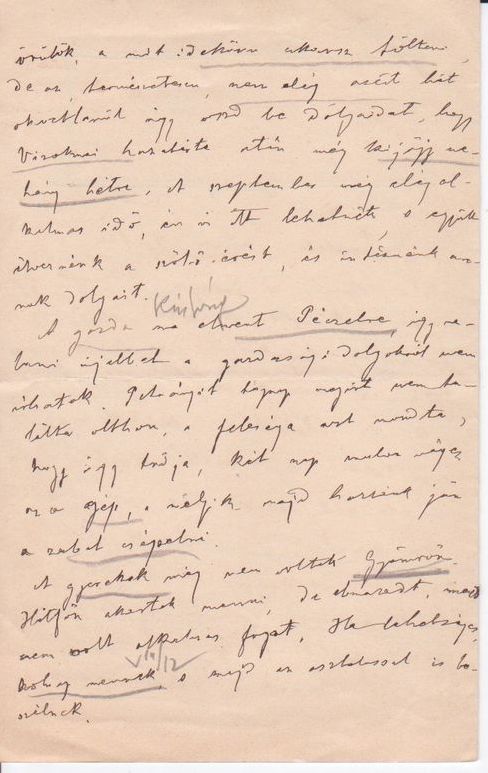 örülök, a mit idekünn akarsz tölteni,
de ez, természetesen, nem elég azért hát
okvetlenül úgy oszd be dolgaidat, hogy
hazatérte után még kijöjj né-
hány hétre, A szeptember még elég al-
kalmas idő, én is itt lehetnék, s együtt
élveznénk a szőlő érést, és intéznénk an-
nak dolgait.
A gazda ma elment Péczelre, így ve-
lami újabbat a gazdasági dolgokról nem
írhatok. tegnap megint nem ta-
lálta otthon, a felesége azt mondta,
hogy úgy tudja, két nap mulva végez
az a gép, a méljik majd hozzánk jön
a zabot csépelni.
A gyerekek még nem voltak Gyömrőn.
Hétfőn akartak menni, de elmaradt, mert
nem volt alkalmas fogat, Ha lehetséges,
holnap mennek, s majd az asztalossal is be-
szélnek.